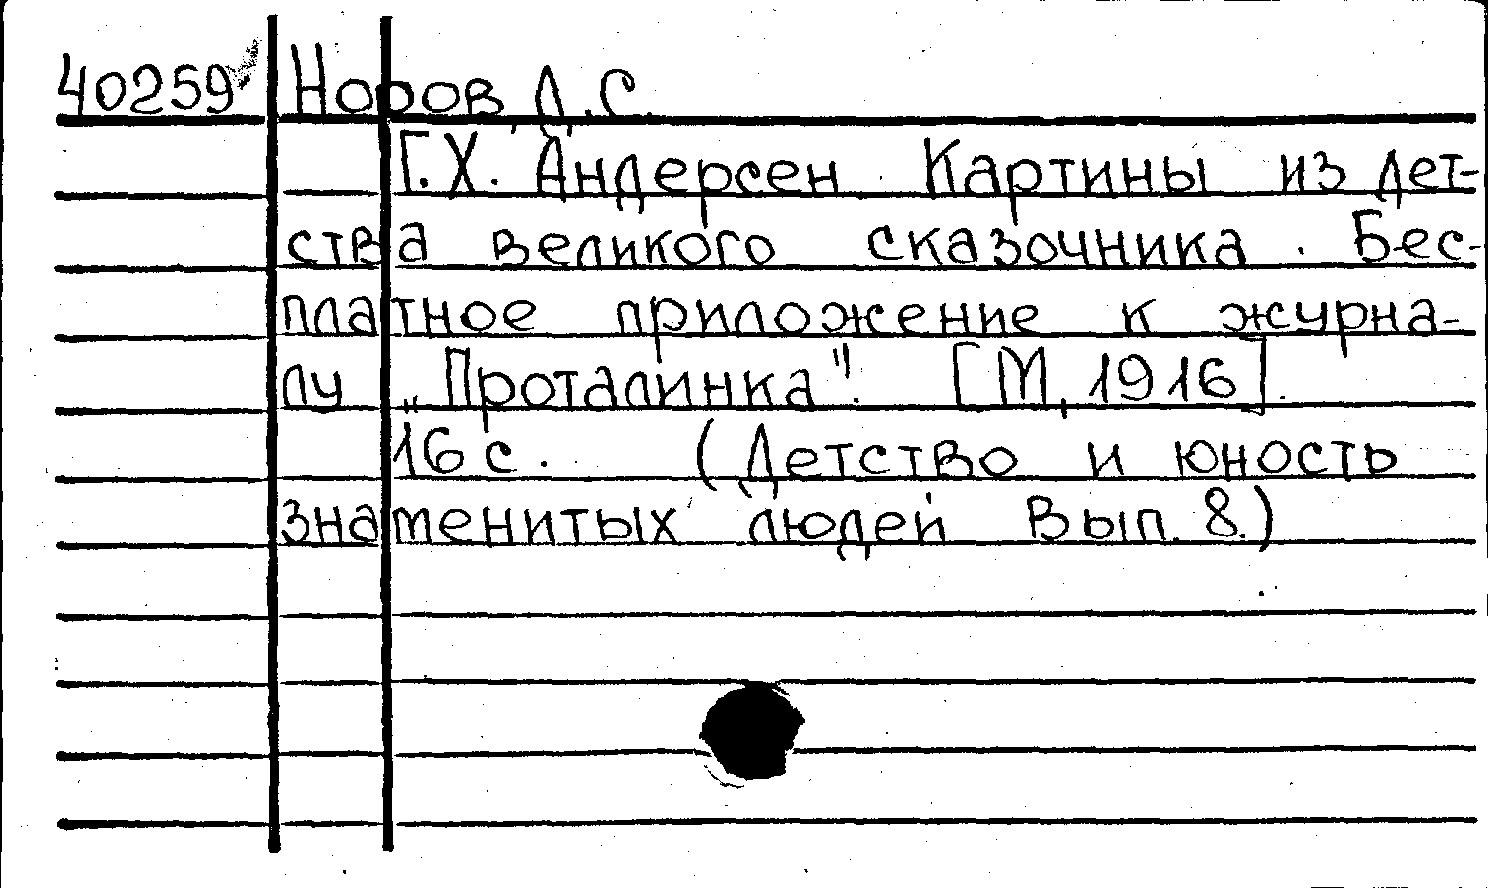 40259 Норов, Д.С.
Г.Х. Андерсен. Картины из дет-
ства великого сказочника. Бес-
платное приложение к журна-
лу „Проталинка". [М, 1916].
16 с. (Детство и юность
знаменитых людей Вып. 8.)